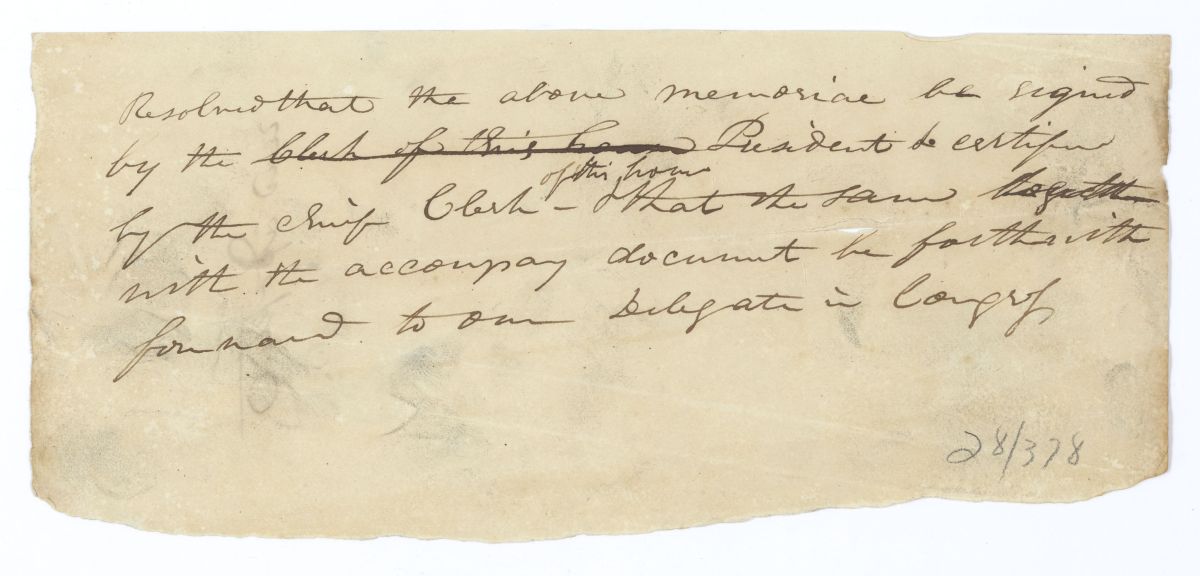 Resolved that the above memorial be signed
by the Clerk of this house President & certified
of this house
by the chief Clerk – & that the same together
with the accompay document be forthwith
forward to our Delegate in Congress
28/378